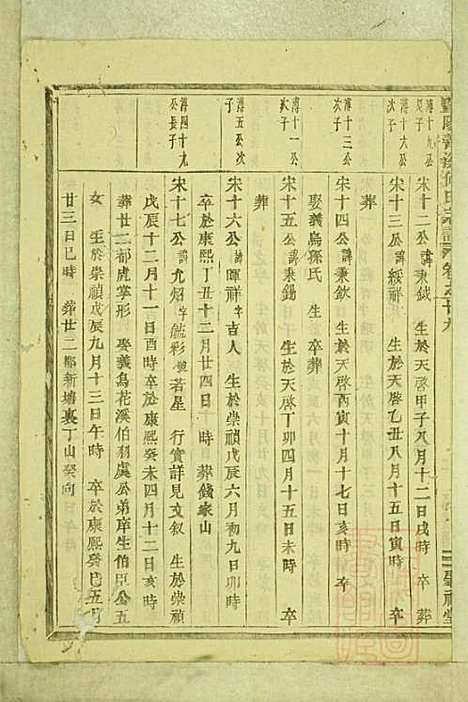 暨陽
何氏宗譜
卷之廿九
薄十九公
長子
宋十二公諱秉鉞 生於天啓甲子八月十二日戌時 卒 葬
薄十六公
次子
宋十三公諱綏祥 生於天啓乙丑八月十五日寅時 卒
薄十三公
次子
宋十四公諱秉欽 生於天啓丙寅十月十七日亥時 卒
娶義烏孫氏 生 卒 葬
薄十一公
次子
宋十五公諱秉錫 生於天啓丁卯四月十五日未時 卒
葬
薄五公次
子
宋十六公諱暉祥字吉人 生於崇禎戊辰六月初九日卯時
卒於康熙丁丑十二月廿四日 時 葬錢家山
薄四十九
公長子
宋十七公諱允炤字 彩號若星 行實詳見文叙 生於崇禎
戊辰十二月十一日酉時卒於康熙癸未四月十二日亥時
葬廿二都虎掌形 娶義烏花溪伯羽虞公第 生伯 公五
女 生於崇禎戊辰九月十三日午時 卒於康熙癸巳五月
廿三日巳時 葬廿二都新塘裏丁山癸向